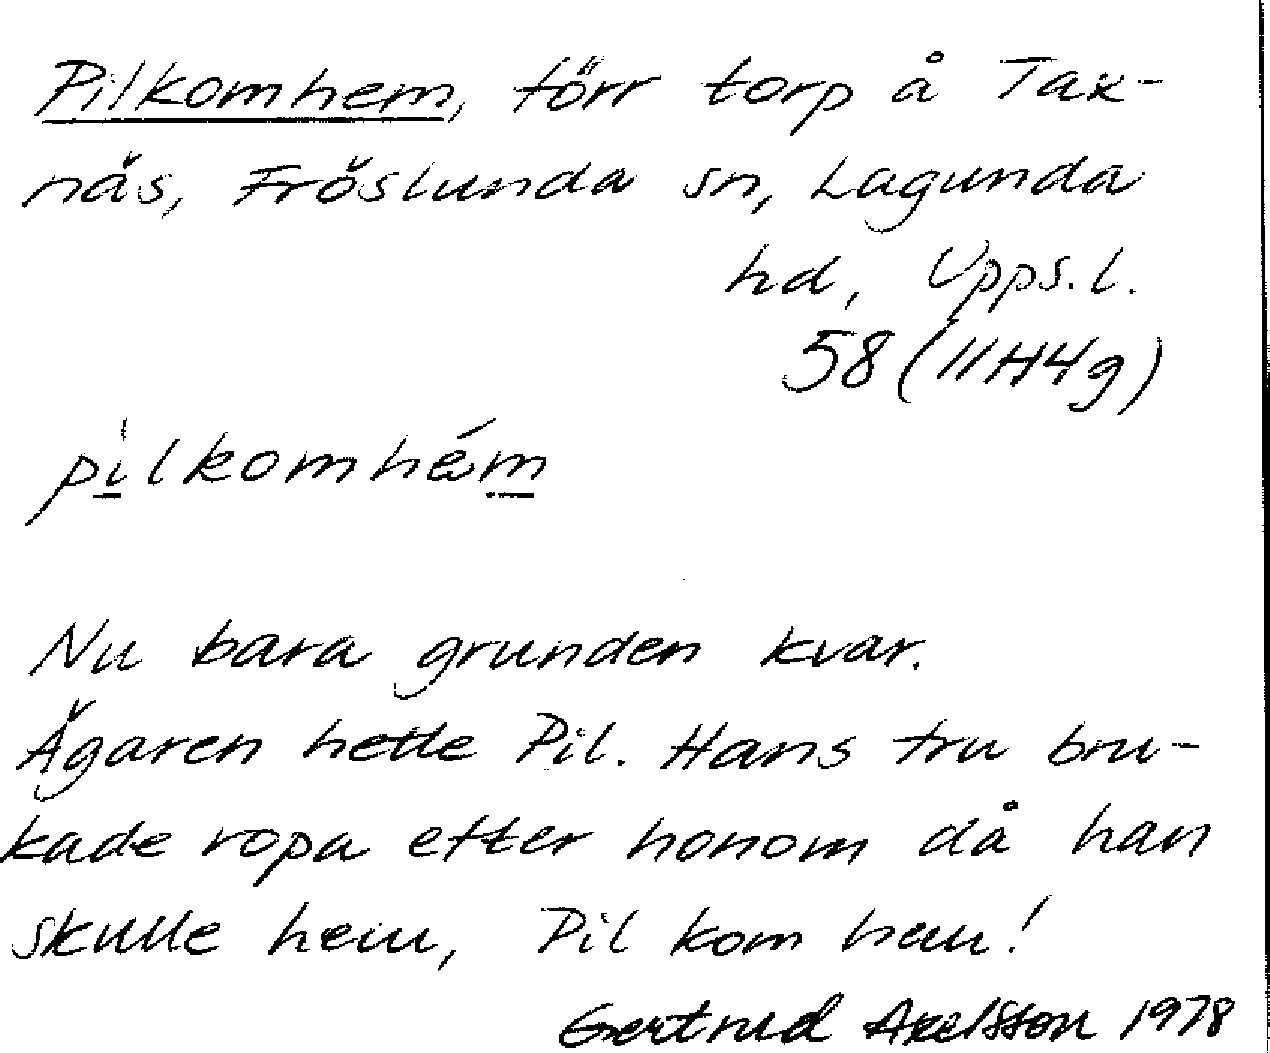 Pilkomhem, förr torp å Tax-
näs, Fröslunda sn, Lagunda
hd, Upps.l.
58 (11H4g)
pilkomhém
Nu bara grunden kvar.
Ägaren hette Pil. Hans fru bru-
kade ropa efter honom då han
skulle hem, Pil kom hem!
Gertrud Axelsson 1978